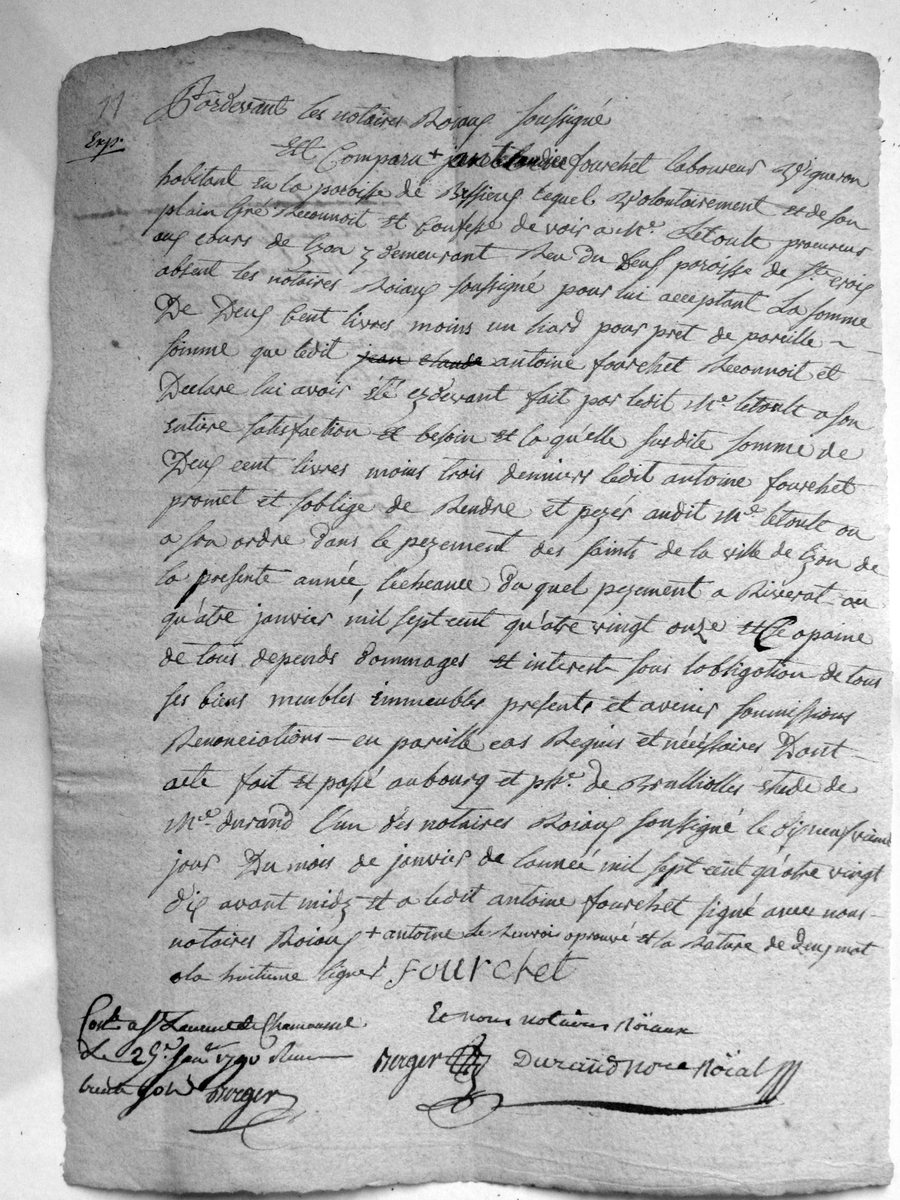 11
Exp.
Pardevant les notaires Roiaux soussigné
Est Comparu + jean claude fourchet laboureur Vigneron
habitant en la paroisse de Bessieux lequel Volontairement et de son
plain Gré Reconnoit et Confesse de voir a Me. Letoule procureur
aux cours de lyon y demeurant Rue du beuf paroisse de Ste croix
absent les notaires Roiaux soussigné pour lui acceptant La somme
De Deux Cent livres moins un liard pour pret de pareille
somme que ledit jean claude antoine fourchet Reconnoit et
Declare lui avoir été cydevant fait par ledit Me letoule a son
entiere satisfaction et besoin et la qu'elle susdite somme de
Deux cent livres moins trois denniers ledit antoine fourchet
promet et soblige de Rendre et peyer audit Me letoule ou
a son ordre dans le peyement des saints de la ville de lyon de
la presente année, lecheance Duquel peyement a Riverat au
qu'atre janvier mil sept cent qu'atre vingt onze et Ce apaine
de tous depends dommages et interest sous lobligation de tous
ses biens meubles immeubles presents et avenir soumissions
Renonciations en pareille cas Requis et nécéssaires Dont
acte fait et passé au bourg et psse. de Brulliolles etude de
Me. durand l'un des notaires Roiaux soussigné le dix neufvieme
jour Du mois de janvier de lannée mil sept cent qu'atre vingt
dix avant midy et a ledit antoine fourchet signé avec nous
notaires Roiaux + antoine le Renvoi aprouvé et la Rature de deux mot
a la huitieme ligne fourchet
Et nous notaires Roïaux
Conlé a St Laurent de Chamousset
Le 29e janr 1790 Reçu
trente sols Berger
Berger Durand nore Roïal